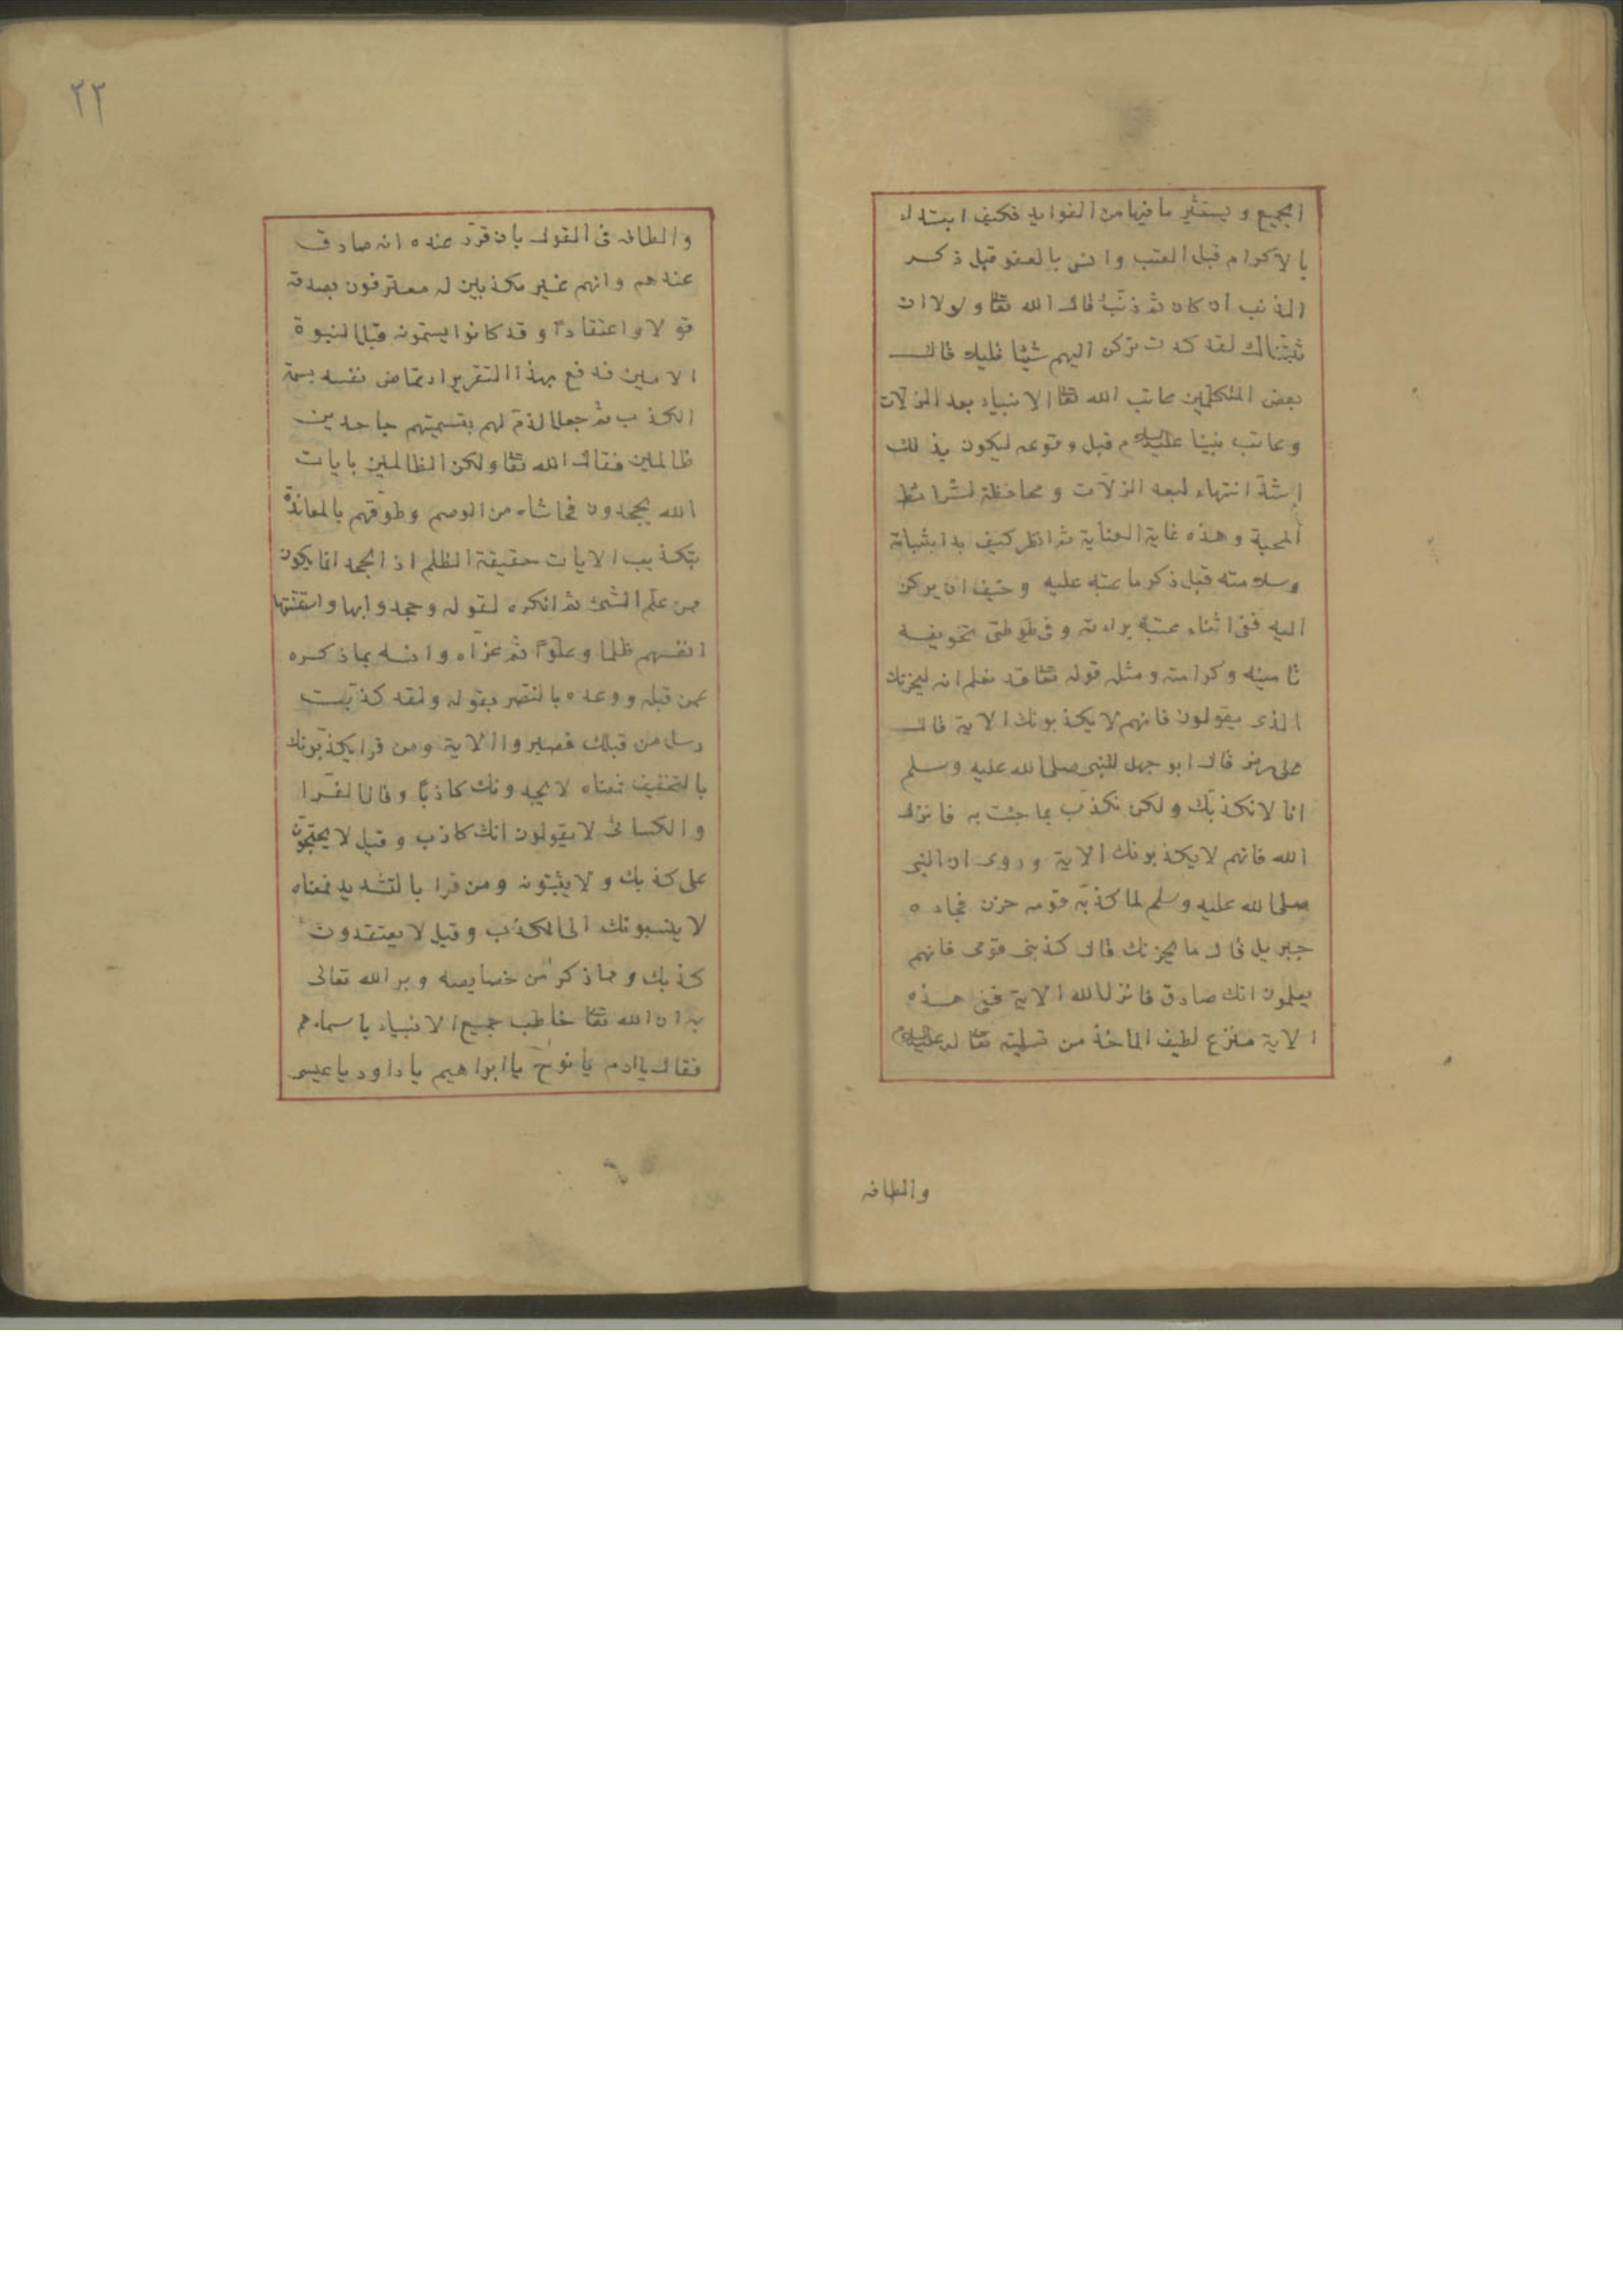 الجميع و يستثير ما فيها من الفوايد فكيف ابتدا
بالاكرام قبل العتب وانس بالعفو قبل ذكر
الذنب ان كان ثم ذنب قال الله تعا ولولا ان
ثبتناك لقد كدت تركن اليهم شيئا قليلا قال
بعض المتكلمين عاتب الله تعا الانبياء بعد الزلات
وعاتب نبينا عليه السلام قبل وقوعه ليكون بذلك
اشد انتهاء لبعد الزلات ومحافظة لشرائط
المحبة وهذه غاية العناية ثم انظر كيف بدا بثباته
وسلامته قبل ذكر ما عتبه عليه وخيف ان يركن
اليه ففى اثناء عتبه براءته وفى طى تخويفه
تامينه وكرامته ومثله قوله تعا قد نعلم انه ليحزنك
الذى يقولون فانهم لا يكذبونك الاية قال
على رضى قال ابو جهل للنبى صلى الله عليه وسلم
انا لا نكذبك ولكن نكذب بما جئت به فانزل
الله فانهم لا يكذبونك الاية وروى ان النبى
صلى الله عليه وسلم لما كذبه قومه حزن فجاءه
جبريل قال ما يحزنك قال كذبنى قومى فانهم
يعلمون انك صادق فانزل الله الاية ففى هذه
الاية منزع لطيف الماخذ من تسليته تعا له عليه السلام
والطافه
٢٢
والطافه فى القول بان قرر عنده انه صادق
عندهم وانهم غير مكذبين له معترفون بصدقه
قولا واعتقادا وقد كانوا يسمونه قبل النبوة
الامين فدفع بهذا التقرير ارتماض نفسه بسمة
الكذب ثم جعل الذم لهم بتسميتهم جاحدين
ظالمين فقال الله تعا ولكن الظالمين بايات
الله يجحدون فحاشاه من الوصم وطوقهم بالمعاندة
بتكذيب الايات حقيقة الظلم اذ الجحد انما يكون
ممن علم الشئ ثم انكره لقوله وجحدوا بها واستقنتها
انفسهم ظلما وعلوا ثم عزاه وانسه بما ذكره
عمن قبله ووعده بالنصر بقوله ولقد كذبت
رسل من قبلك فصبروا الاية ومن قرا يكذبونك
بالتخفيف فمعناه لا يجدونك كاذبا وقال الفرا
والكسائى لا يقولون انك كاذب وقيل لا يحتجون
على كذبك ولا يثبتونه ومن قرا بالتشديد فمعناه
لا ينسبونك الى الكذب وقيل لا يعتقدون
كذبك ومما ذكر من خصايصه وبر الله تعالى
به ان الله تعا خاطب جميع الانبياء باسماءهم
فقال يا ادم يا نوح يا ابراهيم يا داود يا عيسى